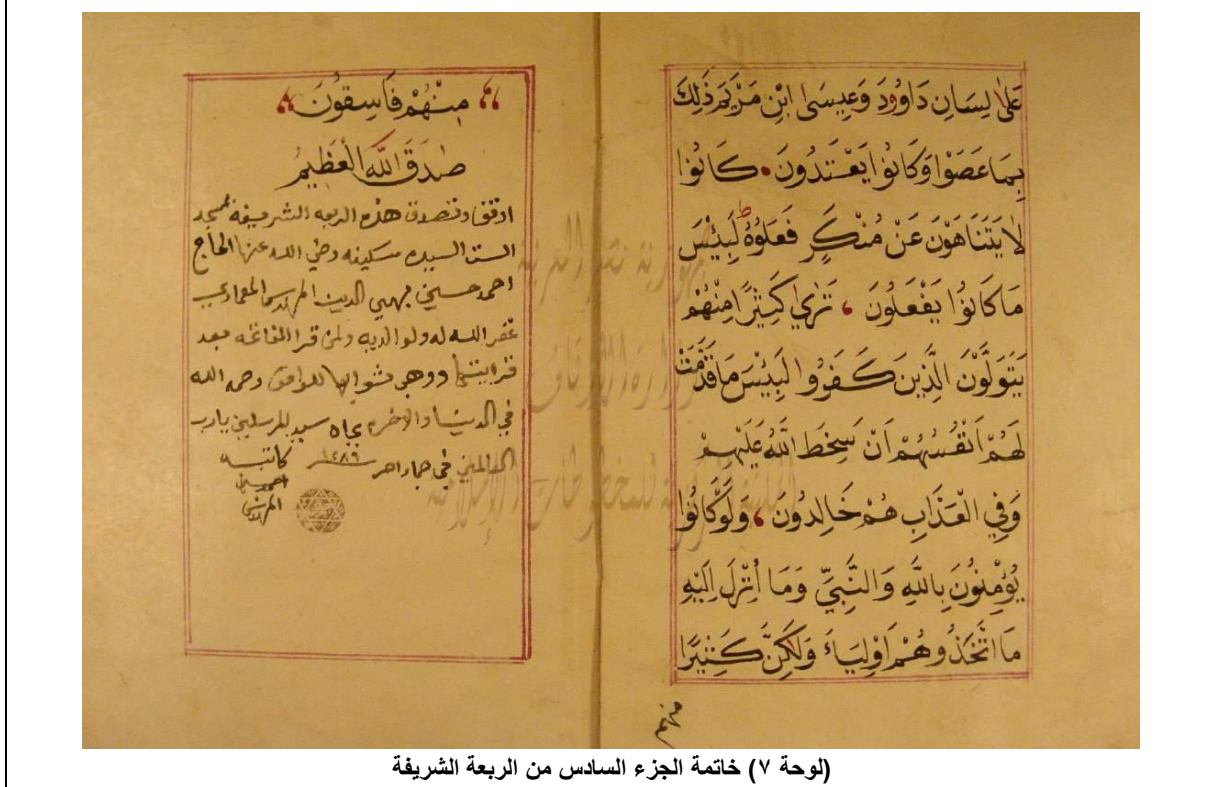 عَلٰى لِسَانِ دَاوُودَ وَعِيسَى ابْنِ مَرْيَمَ ذٰلِكَ
بِمَا عَصَوْا وَكَانُوا يَعْتَدُونَ كَانُوا
لَا يَتَنَاهَوْنَ عَنْ مُنْكَرٍ فَعَلُوهُ ط لَبِئْسَ
مَا كَانُوا يَفْعَلُونَ تَرٰى كَثِيرًا مِنْهُمْ
يَتَوَلَّوْنَ الَّذِينَ كَفَرُوا لَبِئْسَ مَا قَدَّمَتْ
لَهُمْ اَنْفُسُهُمْ اَنْ سَخِطَ اللّٰهُ عَلَيْهِمْ
وَفِي الْعَذَابِ هُمْ خَالِدُونَ وَلَوْ كَانُوا
يُؤْمِنُونَ بِاللّٰهِ وَالنَّبِيِّ وَمَا اُنْزِلَ اِلَيْهِ
مَا اتَّخَذُوهُمْ اَوْلِيَاءَ وَلٰكِنَّ كَثِيرًا
منهم
مِنْهُمْ فَاسِقُونَ
صَدَقَ اللّٰهُ الْعَظِيمُ
اوقف وتصدق هذه الربعه الشريفه بمسجد
الست السيده سكينه رضي الله عنها الحاج
احمد حسين فهمي الدين المهندس المعماري
غفر الله له ولوالديه ولمن قرا الفاتحه بعد
قرايتها ووهب ثوابها للواقف رحمه الله
في الدنيا والاخره بجاه سيد المرسلين يارب
العالمين في جماد اخر ١٢٨٩ كاتبه
احمد حسين
المهندس
(لوحة ٧) خاتمة الجزء السادس من الربعة الشريفة